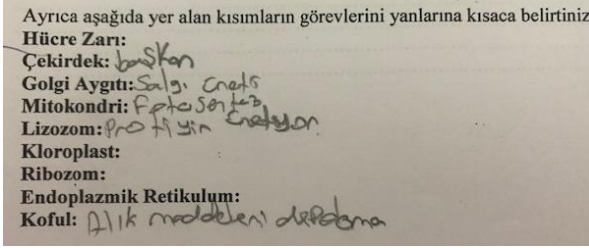 Ayrıca aşağıda yer alan kısımların görevlerini yanlarına kısaca belirtiniz
Hücre Zarı:
Çekirdek: başkan
Golgi Aygıtı: Salgı
Mitokondri: fotosentez
Lizozom: Protiyin
Kloroplast:
Ribozom:
Endoplazmik Retikulum:
Koful: Atık maddeleri depolama